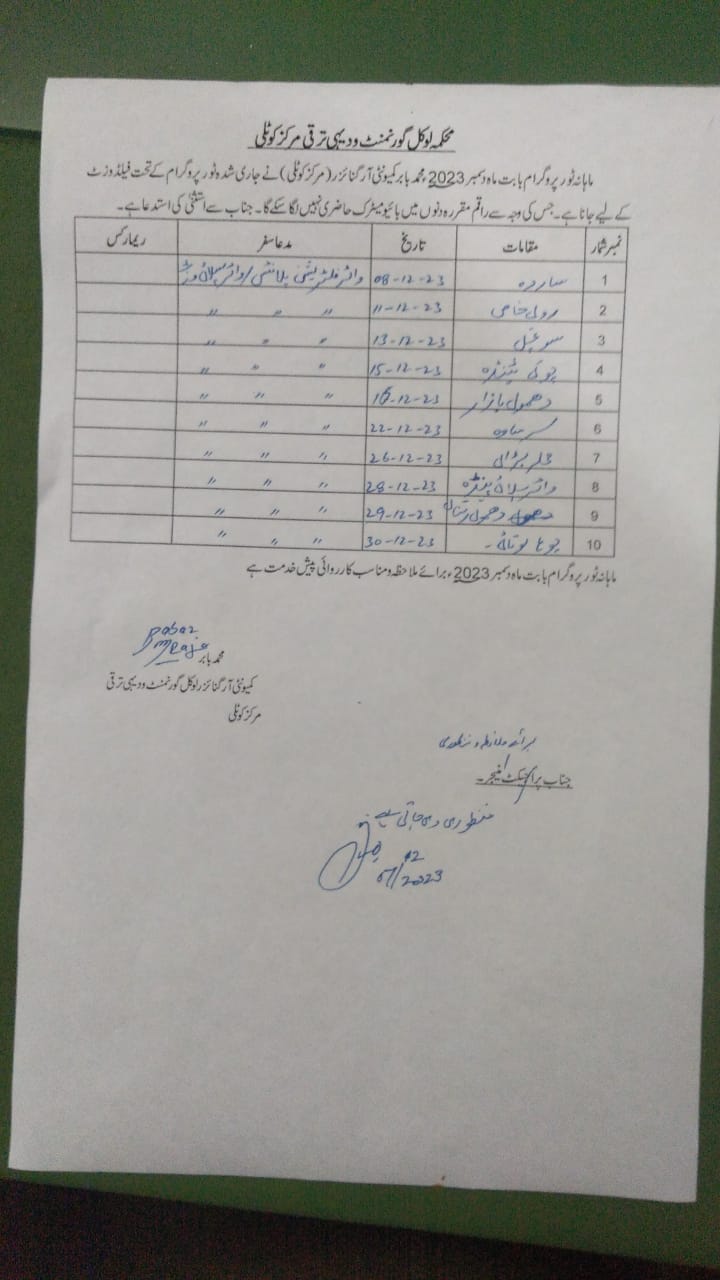 محکمہ لوکل گورنمنٹ و دیہی ترقی مرکز کوٹلی
ماہانہ ٹور پروگرام بابت ماہ دسمبر 2023ء محمد بابر کمیونٹی آرگنائزر (مرکز کوٹلی) نے جاری شدہ ٹور پروگرام کے تحت فیلڈ وزٹ
کے لیے جانا ہے۔ جس کی وجہ سے راقم مقررہ دنوں میں بائیو میٹرک حاضری نہیں لگا سکے گا۔ جناب سے استثنیٰ کی استدعا ہے۔
نمبر شمار مقامات تاریخ مدعا سفر ریمارکس
1 ساردہ 08-12-23 واٹر فلٹریشن پلانٹس / واٹر سپلائی
2 رولی خاص 11-12-23 〃 〃 〃
3 13-12-23 〃 〃 〃
4 چوکی 15-12-23 〃 〃 〃
5 دھمول بازار 16-12-23 〃 〃 〃
6 سرساوہ 22-12-23 〃 〃 〃
7 26-12-23 〃 〃 〃
8 واٹر سپلائی 28-12-23 〃 〃 〃
9 دھمول 29-12-23 〃 〃 〃
10 30-12-23 〃 〃 〃
ماہانہ ٹور پروگرام بابت ماہ دسمبر 2023ء برائے ملاحظہ و مناسب کارروائی پیش خدمت ہے
Babar
Raja
محمد بابر
کمیونٹی آرگنائزر لوکل گورنمنٹ و دیہی ترقی
مرکز کوٹلی
برائے ملاحظہ و منظوری
جناب پراجیکٹ منیجر۔
منظوری دی جاتی ہے
07/12/2023